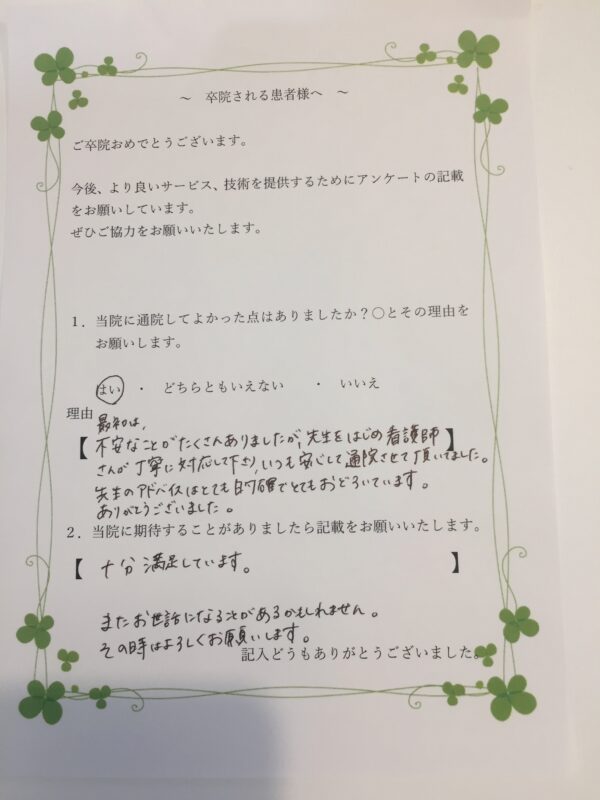 ～ 卒院される患者様へ ～
ご卒院おめでとうございます。
今後、より良いサービス、技術を提供するためにアンケートの記載
をお願いしています。
ぜひご協力をお願いいたします。
１．当院に通院してよかった点はありましたか？〇とその理由を
お願いします。
はい ・ どちらともいえない ・ いいえ
理由
最初は、
【不安なことがたくさんありましたが、先生をはじめ看護師】
さんが丁寧に対応して下さり、いつも安心して通院させて頂いてました。
先生のアドバイスはとても的確でとてもおどろいています。
ありがとうございました。
２．当院に期待することがありましたら記載をお願いいたします。
【 十分満足しています。 】
またお世話になることがあるかもしれません。
その時はよろしくお願いします。
記入どうもありがとうございました。